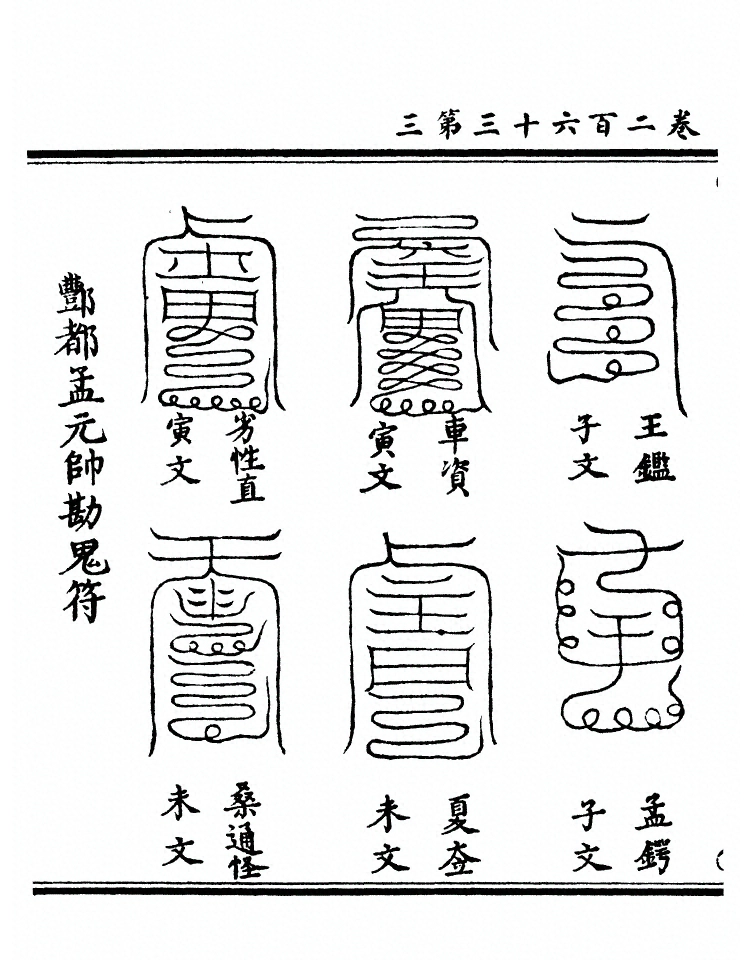 卷二百六十三第三
王鑑
子文
車資
寅文
劣性直
寅文
孟鍔
子文
夏夽
未文
桑通怪
未文
酆都孟元帥勘鬼符